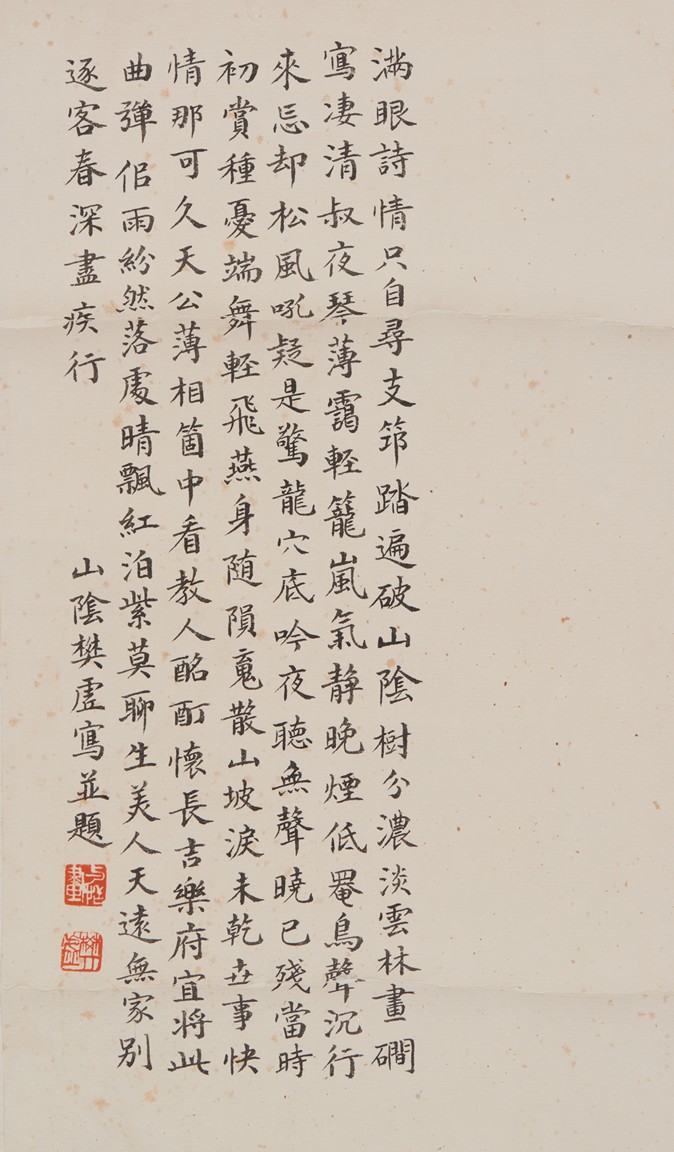 滿眼詩情只自尋支筇踏遍破山陰樹分濃淡雲林畫磵
寫凄清叔夜琴薄靄輕籠嵐氣静晚煙低罨鳥聲沉行
來忘却松風吼疑是驚龍穴底吟夜聽無聲曉已殘當時
初賞種憂端舞輕飛燕身随隕魂散山坡淚未乾世事快
情那可久天公薄相箇中看教人酩酊懷長吉樂府宜將此
曲彈侶雨紛然落處晴飄紅泊紫莫聊生美人天遠無家別
逐客春深盡疾行
山陰樊虛寫並題